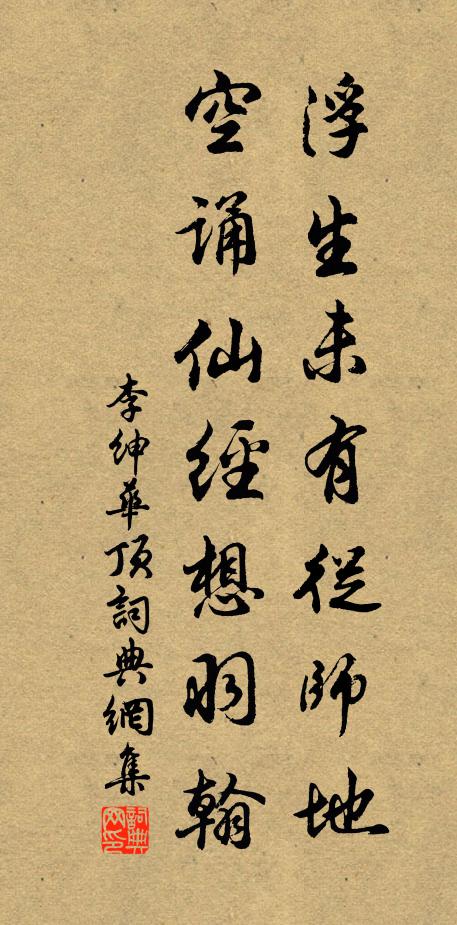 浮生未有從師地
空誦仙經想羽翰
李紳華頂詞典網集
詞典網印